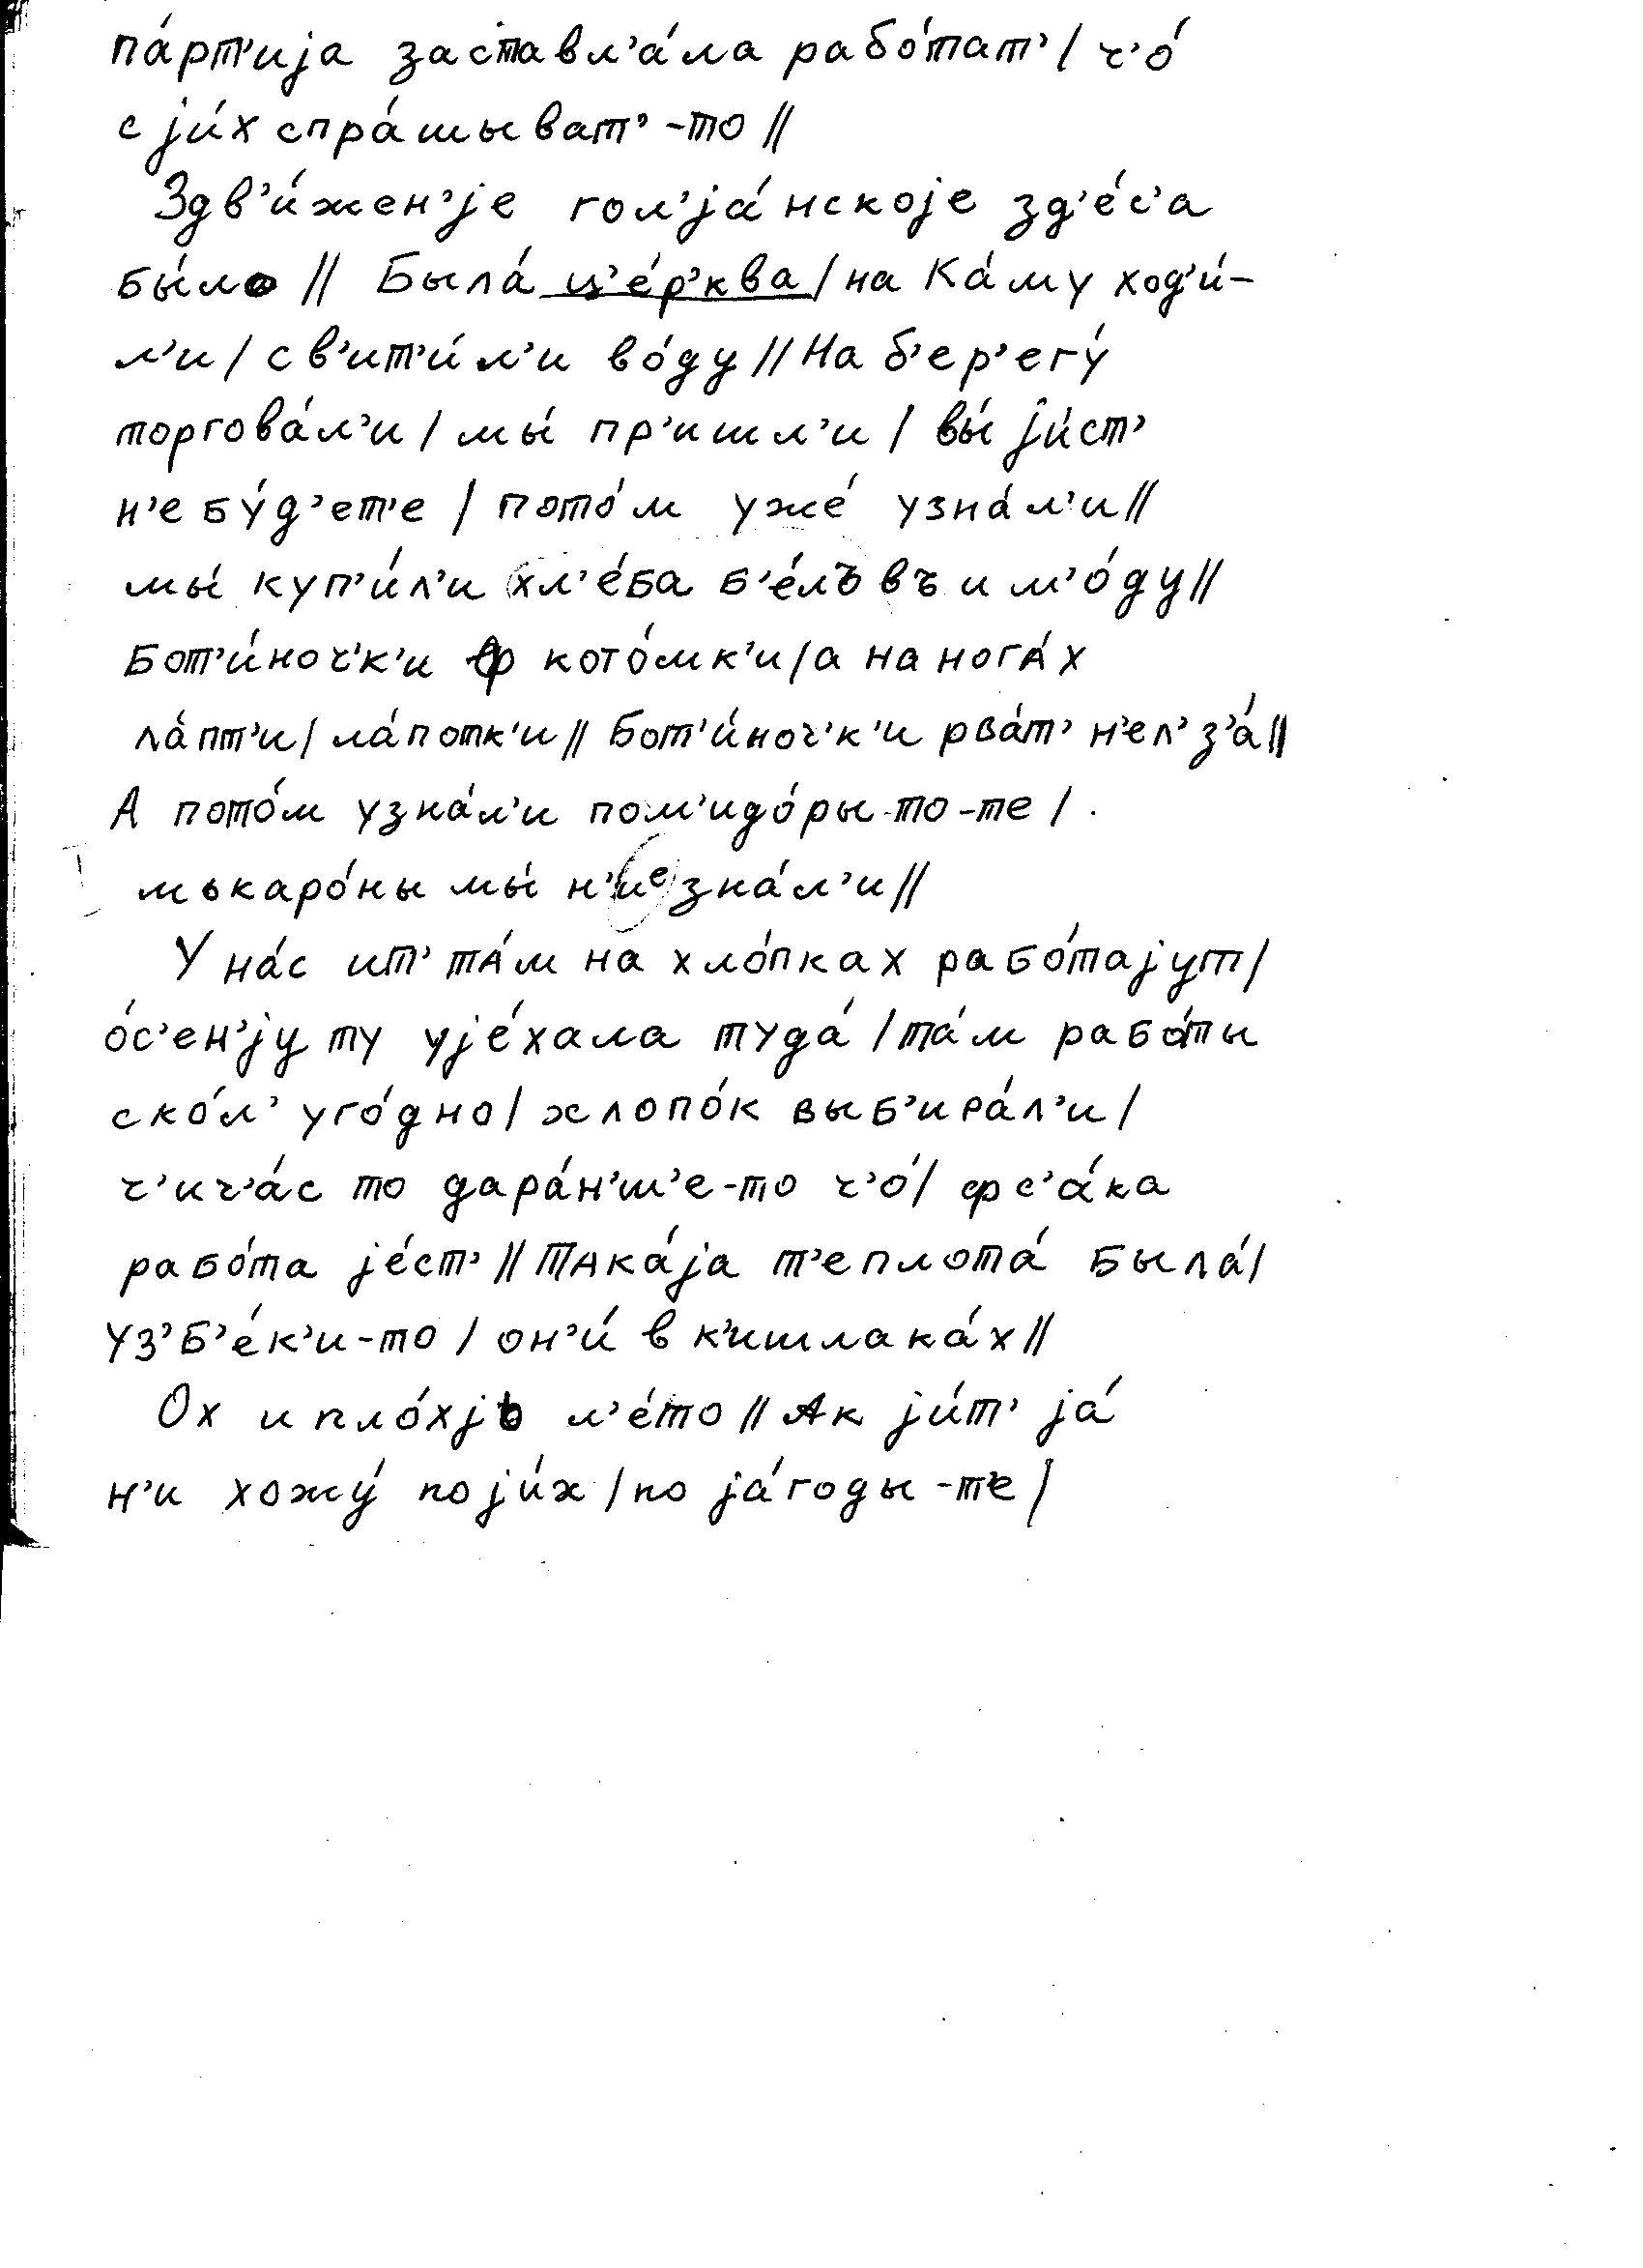 па́рт'иjа заставл'а́ла рабо́тат' / ч'о́
с jи́х спра́шыват'-то //
Здв'и́жен'jе гол'jа́нскоjе зд'е́с'а
бы́ло // Была́ ц'е́р'ква / на Ка́му ход'и́-
л'и / св'ит'и́л'и во́ду // На б'ер'егу́
торгова́л'и / мы́ пр'ишл'и / вы́ jи́ст'
н'е бу́д'ет'е / пото́м уже́ узна́л'и //
мы́ куп'и́л'и хл'е́ба б'е́лъвъ и м'о́ду //
Бот'и́ноч'к'и ф кото́мк'и / а на нога́х
ла́пт'и / ла́потк'и // Бот'и́ноч'к'и рва́т' н'ел'з'а́ //
А пото́м узна́л'и пом'идо́ры-то-те /
мъкаро́ны мы́ н'иᵉзна́л'и //
У на́с ит' та́м на хло́пках рабо́таjут /
о́с'ен'jу ту уjе́хала туда́ / та́м рабо́ты
ско́л' уго́дно / хлопо́к выб'ира́л'и /
ч'ич'а́с то дара́н'ш'е-то ч'о́ / фс'а́ка
рабо́та jе́ст' // Така́jа т'еплота́ была́ /
уз'б'е́к'и-то / он'и́ в к'ишлака́х //
Ох и пло́хjъ л'е́то // Ак jи́т' jа́
н'и хожу́ по jи́х / по jа́годы-те /